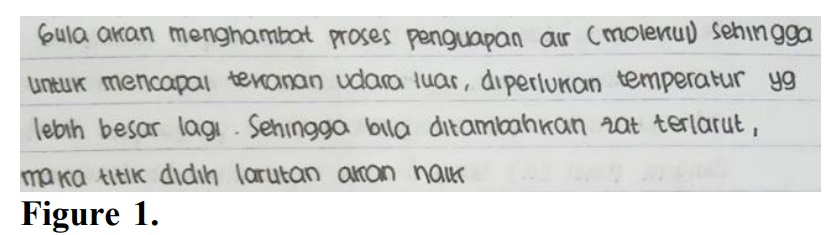 Gula akan menghambat proses penguapan air (molekul) sehingga
untuk mencapai tekanan udara luar, diperlukan temperatur yg
lebih besar lagi. Sehingga bila ditambahkan zat terlarut,
maka titik didih larutan akan naik
Figure 1.